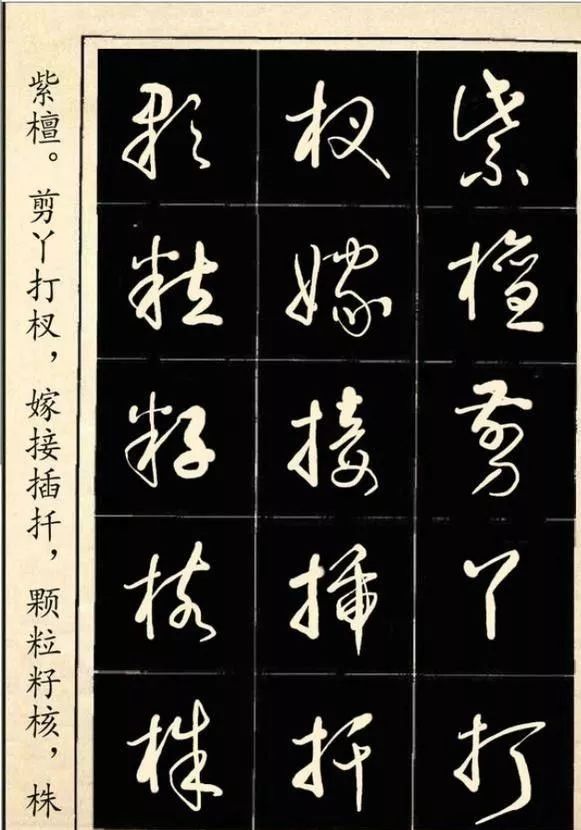 紫檀。剪丫打杈，嫁接插扦，颗粒籽核，株
紫檀剪丫打
杈嫁接插扦
颗粒籽核株